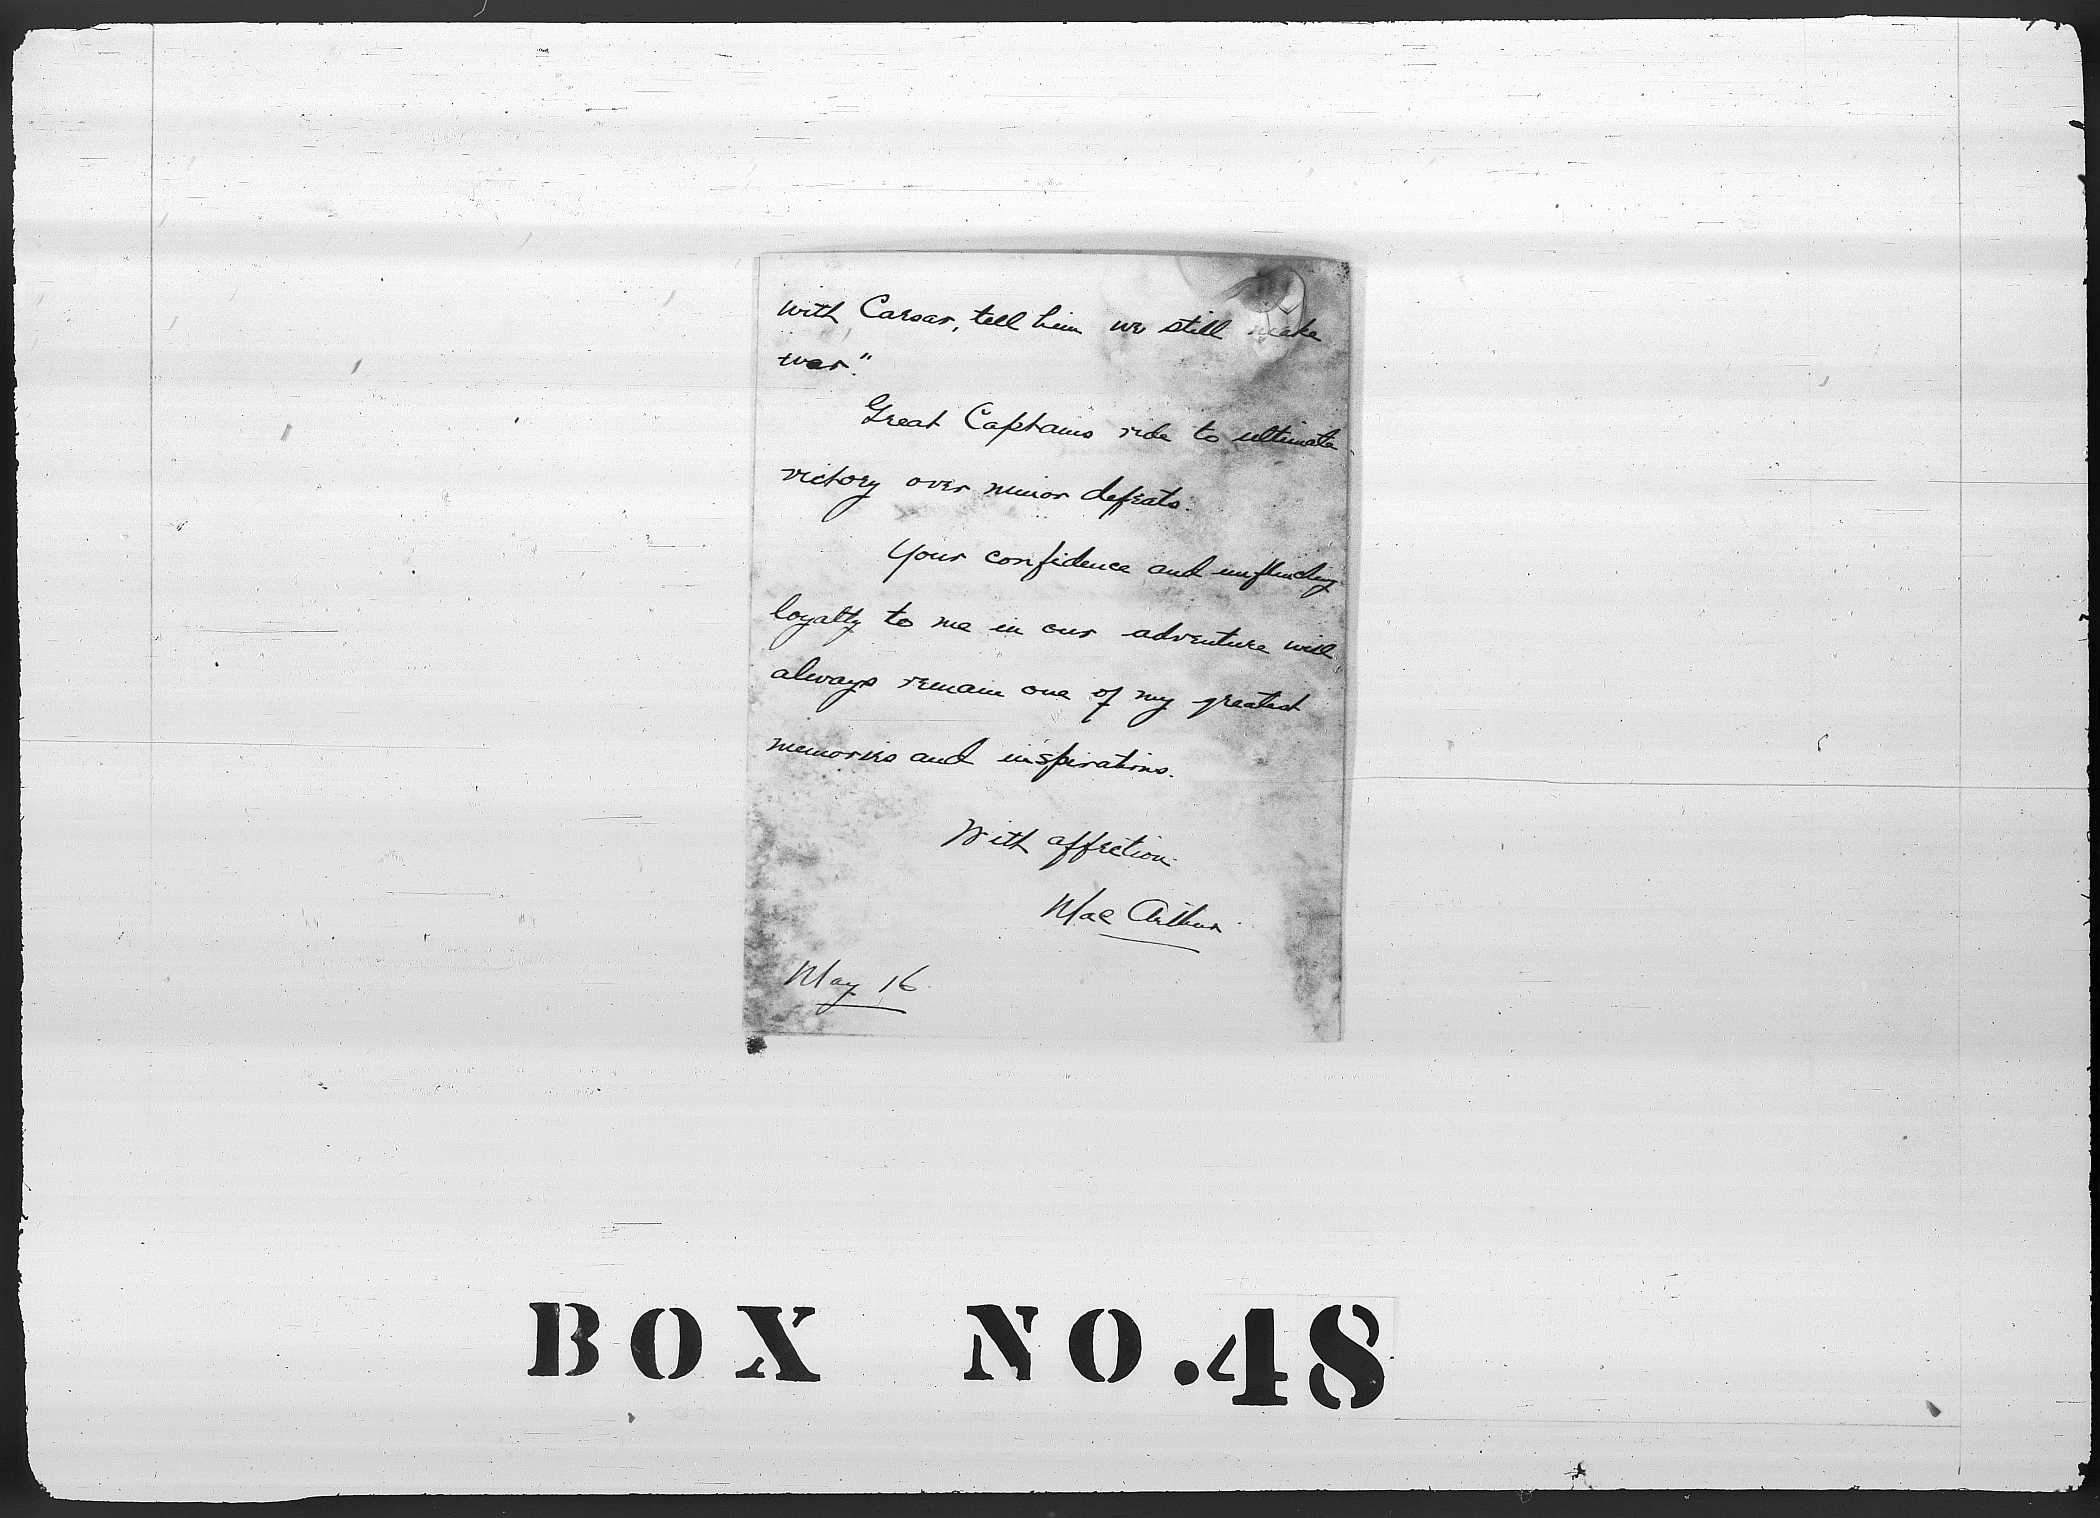 with Caesar, tell him we still make
war."
Great Captains ride to ultimate
victory over minor defeats.
Your confidence and unflinching
loyalty to me in our adventure will
always remain one of my greatest
memories and inspirations.
With affection.
MacArthur
May 16
BOX NO.48